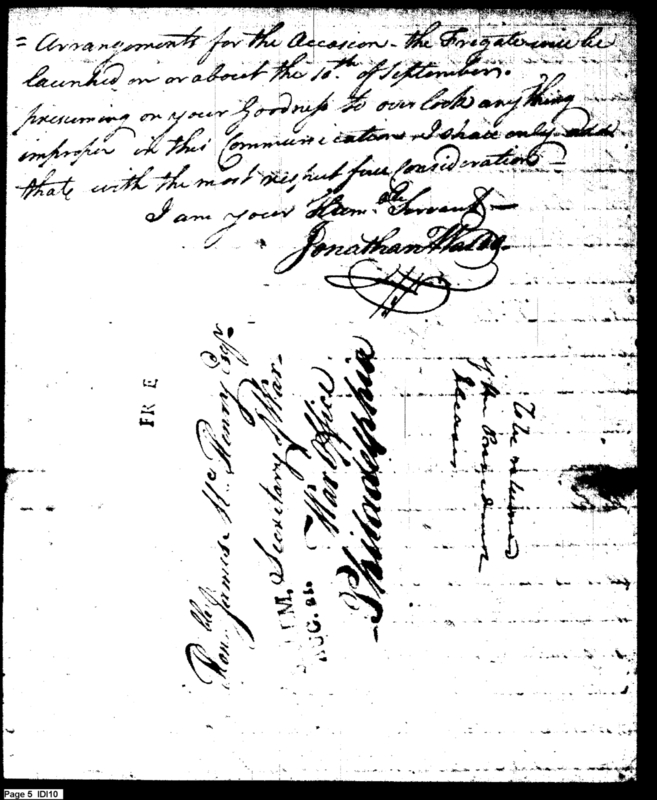 = Arrangements for the Occasion - the Frigate will be
launched on or about the 10th. of September.
presuming on your Goodness to over look any thing
improper in this Communication I shall only add
that with the most respect full Consideration -
I am your Humble. Servant -
Jonathan Waldo.
FREE
Honble. James Mc Henry Esqr.
Secretary of War -
War Office
Philadelphia
SALEM,
AUG. 21.
To be returned